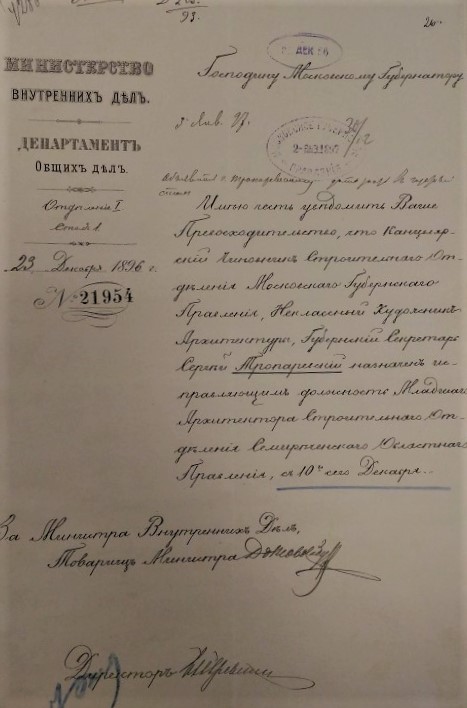 93.
20.
ДЕК 96
МИНИСТЕРСТВО
ВНУТРЕННИХЪ ДѢЛЪ.
ДЕПАРТАМЕНТЪ
Общихъ дѣлъ.
Отдѣленія I
Столъ 1
23 Декабря 1896 г.
№ 21954
Господину Московскому Губернатору
Имѣю честь увѣдомить Ваше
Превосходительство, что Канцеляр-
скій Чиновникъ Строительнаго От-
дѣленія Московскаго Губернскаго
Правленія, Неклассный Художникъ
Архитектуры, Губернскій Секретарь
Сергѣй Тропаревскій назначенъ ис-
правляющимъ должность Младшаго
Архитектора Строительнаго От-
дѣленія Семирѣченскаго Областнаго
Правленія, съ 10го сего Декабря.
За Министра Внутреннихъ Дѣлъ,
Товарищъ Министра
Директоръ